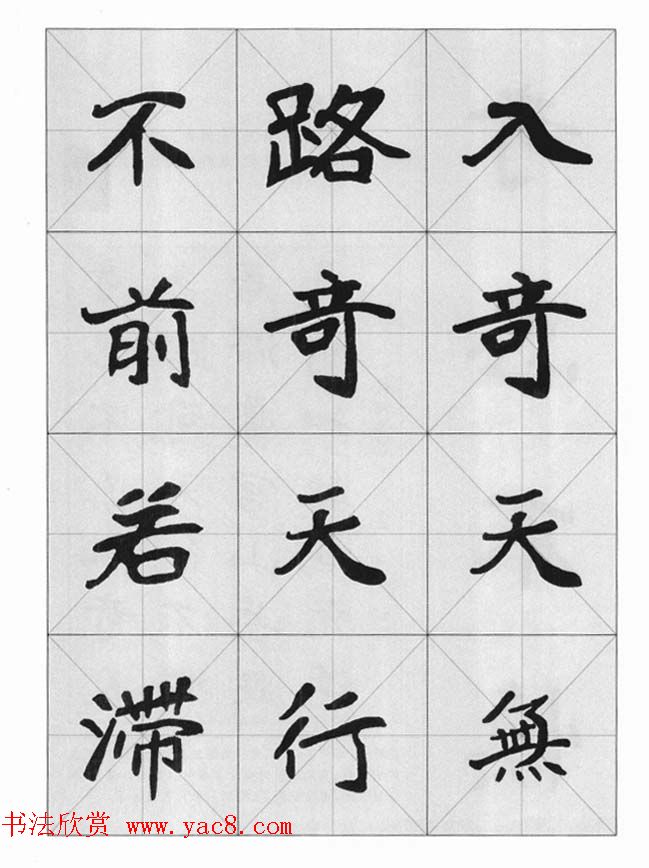 入竒天無
路竒天行
不前若滞
书法欣赏 www.yac8.com